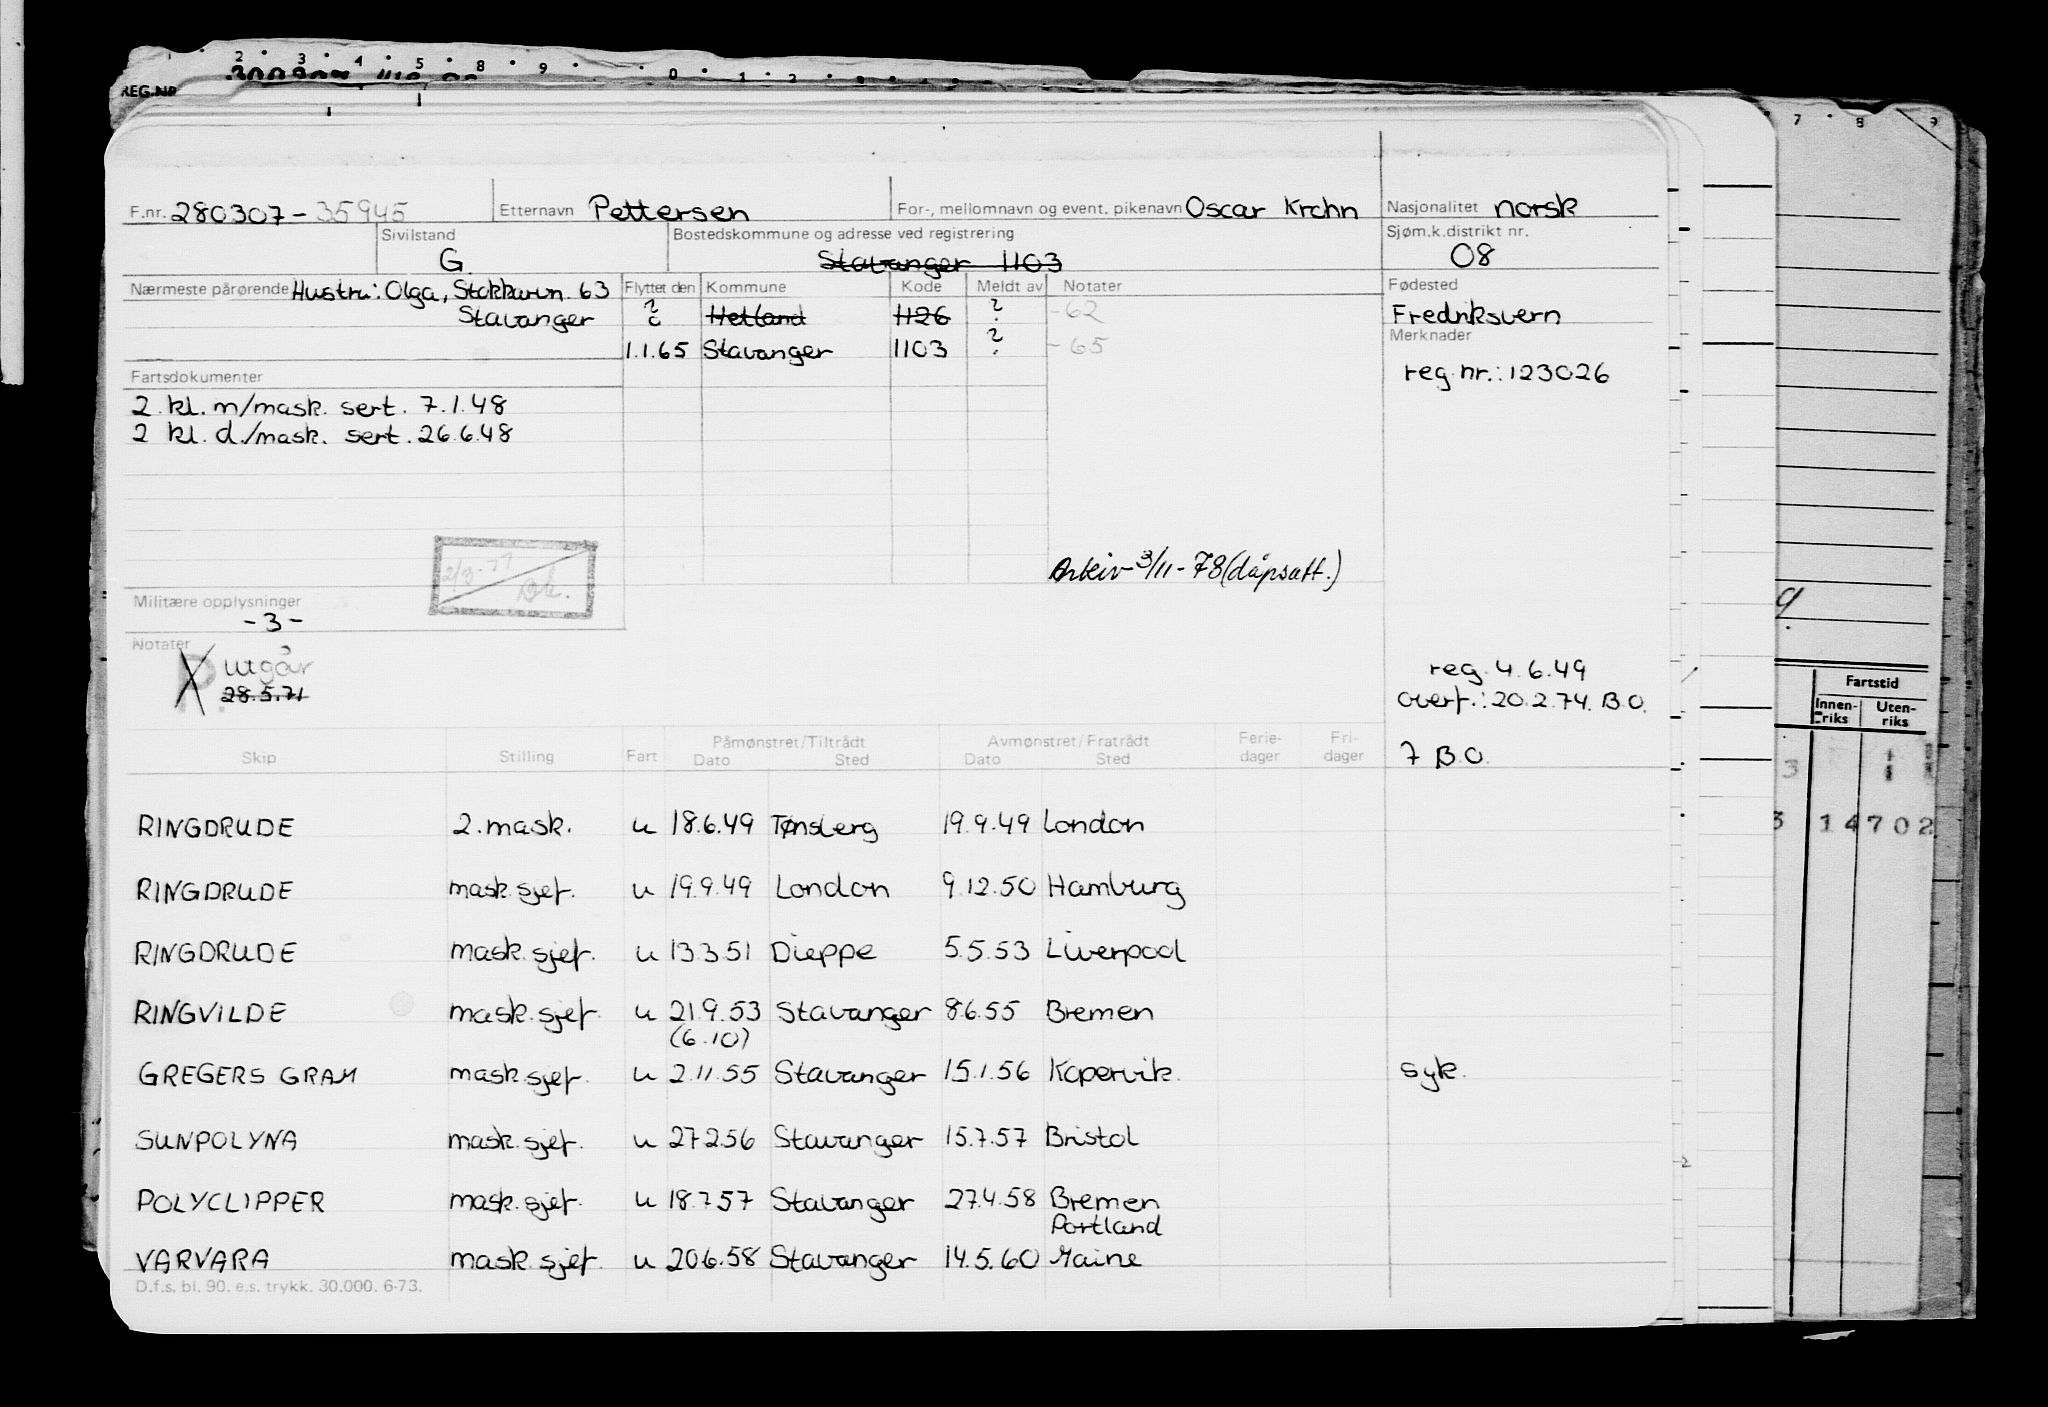 2 3 4 5 8 9 0 1 2
REG.NR
7 8 9
F.nr. 280307-35945 Etternavn Pettersen For-, mellomnavn og event. pikenavn Oscar Krohn Nasjonalitet norsk
Sivilstand Bostedskommune og adresse ved registrering Sjøm.k.distrikt nr.
G. Stavanger 1103 08
Nærmeste pårørende Hustru: Olga, Stokkavn. 63 Flyttet den Kommune Kode Meldt av Notater Fødested
Stavanger ? Hetland 1126 ? -62 Fredriksvern
1.1.65 Stavanger 1103 ? -65 Merknader
Fartsdokumenter reg.nr.: 123026
2 kl. m/mask. sert. 7.1.48
2 kl. d./mask. sert. 26.6.48
Arkiv 3/11-78 (dåpsatt.)
Militære opplysninger
-3-
Notater
utgår
28.5.71
reg. 4.6.49
overf.: 20.2.74. B.O.
7 B.O.
Skip Stilling Fart Påmønstret/Tiltrådt Dato Sted Avmønstret/Fratrådt Dato Sted Ferie-dager Fri-dager
RINGDRUDE 2. mask. u 18.6.49 Tønsberg 19.9.49 London
RINGDRUDE mask.sjef. u 19.9.49 London 9.12.50 Hamburg
RINGDRUDE mask.sjef. u 13.3.51 Dieppe 5.5.53 Liverpool
RINGVILDE mask.sjef. u 21.9.53 Stavanger 8.6.55 Bremen
(6.10)
GREGERS GRAM mask.sjef. u 2.11.55 Stavanger 15.1.56 Kopervik. syk.
SUNPOLYNA mask.sjef. u 27.2.56 Stavanger 15.7.57 Bristol
POLYCLIPPER mask.sjef. u 18.7.57 Stavanger 27.4.58 Bremen
Portland
VARVARA mask.sjef. u 20.6.58 Stavanger 14.5.60 Maine
D.f.s. bl. 90. e.s. trykk. 30.000. 6-73.
Fartstid
Innen-riks Uten-riks
3
3 14702